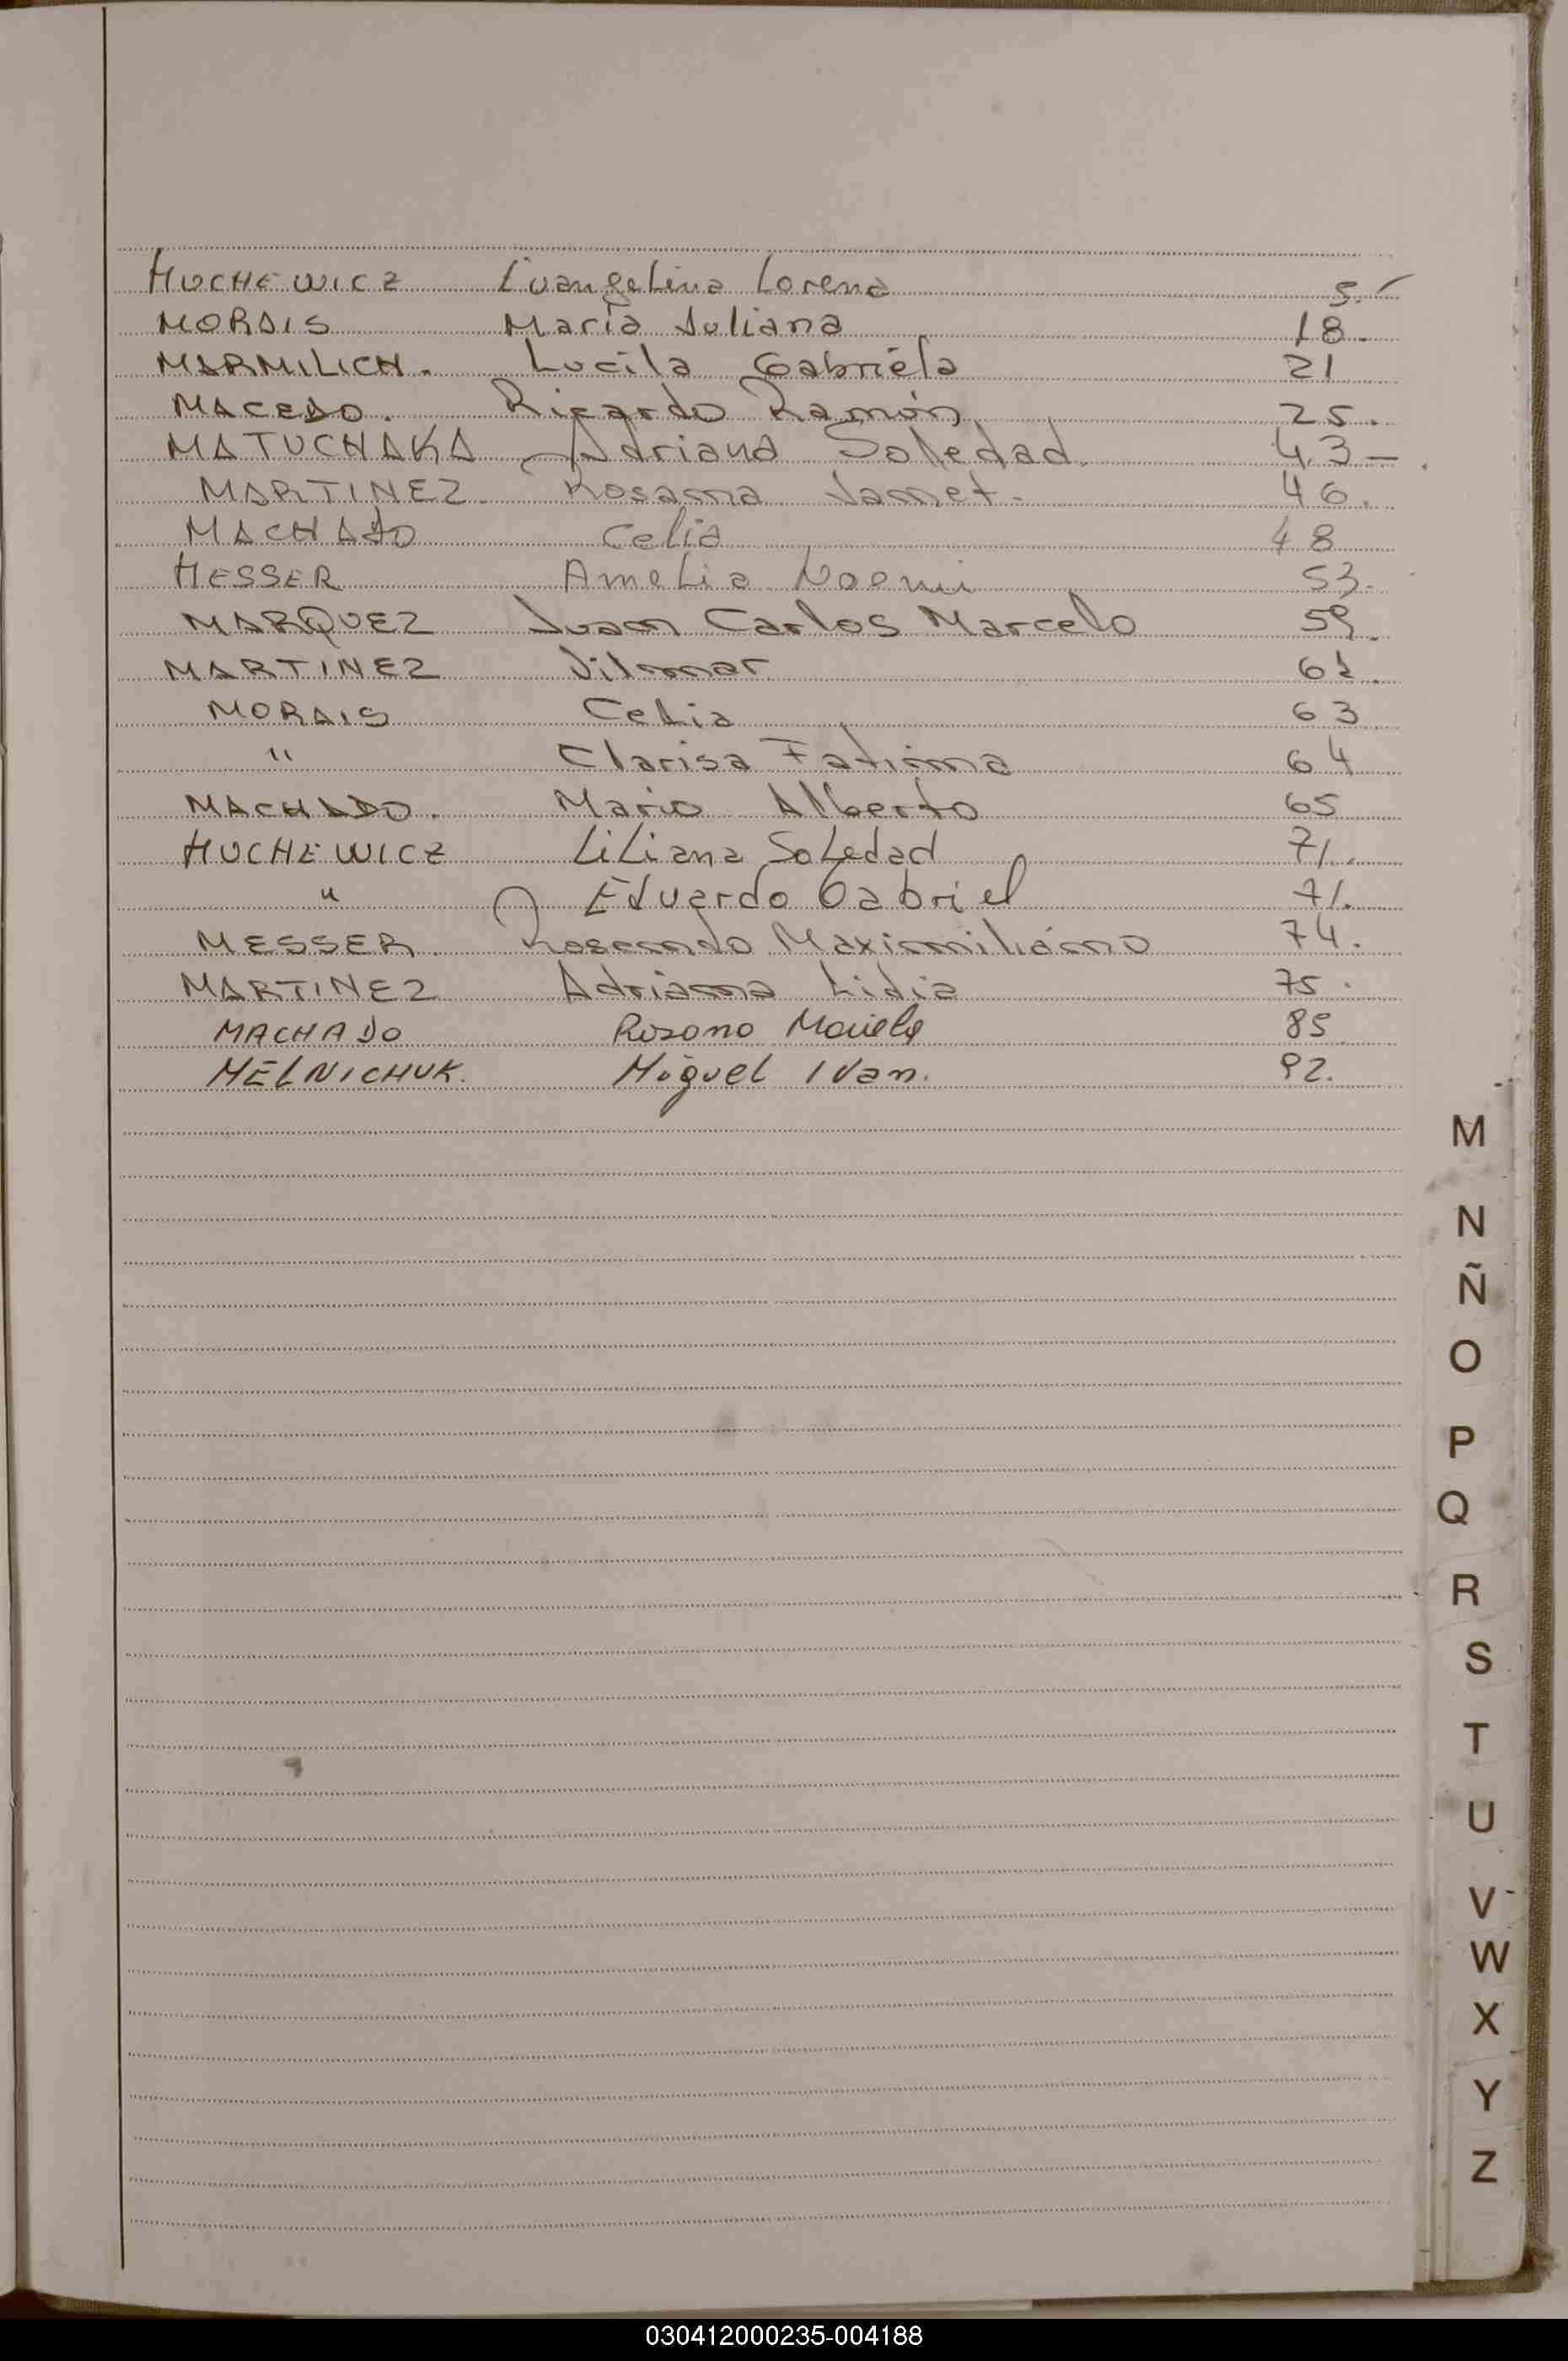 MUCHEWICZ Evangelina Lorena 5.-
MORAIS María Juliana 18.
MARMILICH. Lucila Gabriela 21
MACEDO. Ricardo Ramón 25.
MATUCHAKA Adriana Soledad 43-.
MARTINEZ Rosana Janet. 46.
MACHADO Celia 48
MESSER Amelia Noemi 53.
MARQUEZ Juan Carlos Marcelo 59.
MARTINEZ Vilmar 62.
MORAIS Celia 63
" Clarisa Fatima 64
MACHADO. Mario Alberto 65
MUCHEWICZ Liliana Soledad 71.
" Eduardo Gabriel 71.
MESSER Rosendo Maximiliano 74.
MARTINEZ Adriana Lidia 75.
MACHADO Rosana Mariela 85
MELNICHUK. Miguel Ivan. 92.
M
N
Ñ
O
P
Q
R
S
T
U
V
W
X
Y
Z
030412000235-004188